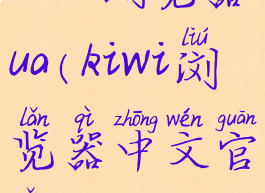 ua(kiwi浏
liú
lǎn qì zhōng wén guān
览器中文官